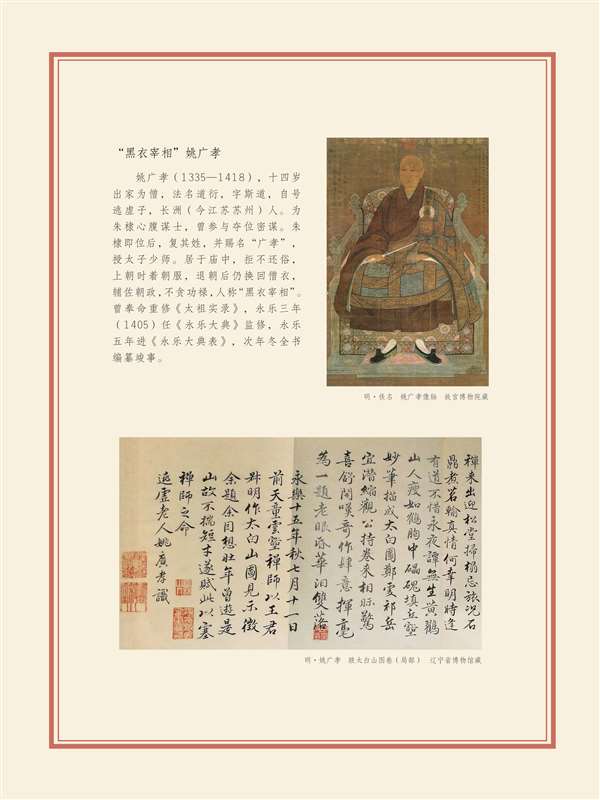 “黑衣宰相”姚广孝
姚广孝（1335—1418），十四岁
出家为僧，法名道衍，字斯道，自号
逃虚子，长洲（今江苏苏州）人。为
朱棣心腹谋士，曾参与夺位密谋。朱
棣即位后，复其姓，并赐名“广孝”，
授太子少师。居于庙中，拒不还俗，
上朝时着朝服，退朝后仍换回僧衣，
辅佐朝政，不贪功禄，人称“黑衣宰相”。
曾奉命重修《太祖实录》，永乐三年
（1405）任《永乐大典》监修，永乐
五年进《永乐大典表》，次年冬全书
编纂竣事。
明·佚名 姚广孝像轴 故宫博物院藏
禅来出迎松堂掃榻忘旅况石
鼎煮茗輸真情何幸明時逢
有道不惜永夜譚無生黄鶴
山人瘦如鶴胸中磊磈填丘壑
妙筆描成太白圖鄭虔祁岳
宜潜縮觀公持卷来相眎驚
喜餘閒嘆奇作肆意揮毫
為一題老眼昏華泪雙落
永樂十五年秋七月十一日
前天童雲壑禪師以王君
叔明作太白山圖見示徵
余題余因想壯年曾遊是
山故不揣短才遂賦此以塞
禪師之命
逃虚老人姚廣孝識
明·姚广孝 跋太白山图卷（局部） 辽宁省博物馆藏